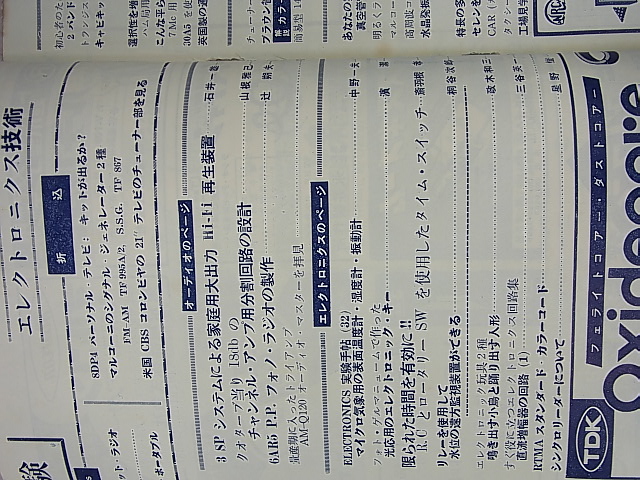 エレクトロニクス技術
折込
8DP4 パーソナル・テレビ: キットが出るか?
マルコーニのシグナル・ジェネレーター2種
FM-AM TF 995A/2, S.S.G. TF 867
米国 CBS コロンビヤの 21″ テレビのチューナー部を見る
オーディオのページ
3 SP システムによる家庭用大出力 Hi-Fi 再生装置
クオターブ当り 18db の
チャンネル・アンプ用分割回路の設計 山根雅己
6AR5 P.P. フォノ・ラジオの製作
量産期に入ったトライアンプ
AM-Q120 オーディオ・マスターを拝見
エレクトロニクスのページ
ELECTRONICS 実験手帖 (32) 中野一夫
マイクロ気象用の表面温度計・湿度計・振動計
フォト・ゲルマニュームで作った
光応用のエレクトロニック・キー
限られた時間を有効に!!
R.C とロータリー SW を使用したタイム・スイッチ
リレーを使用して
水位の遠方監視装置ができる
エレクトロニック玩具2種
鳴き出す小鳥と踊り出す人形
すぐ役に立つエレクトロニクス回路集
直流増幅器の回路 (1)
RTMA スタンダード カラーコード
シンクロリーダーについて
フェライトコアー・ダストコアー
Oxide core
TDK
ット・ラジオ
ポータブル
初心者のた
2 バンド
トランジス
キャビネッ
選択性を増
ハム局用
こんな平ら
7 Mc 用
30A5 を
英国製の通
チューナー
ブラウン管
解説 カラー
簡易型 14
あなたの
真空管
明るくラ
マルコー
高周波コ
水晶発振
特長の多
セレンを
CAR (カ
タクシー
工場見学